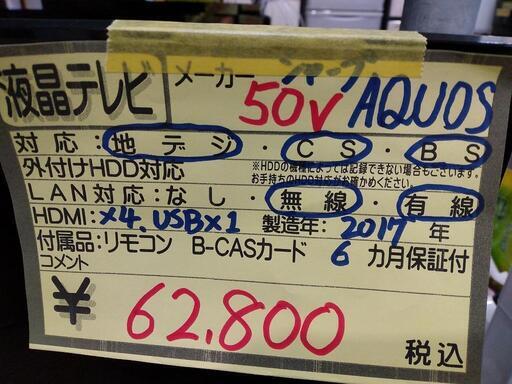 液晶テレビ メーカー シャープ
50V AQUOS
対応・地デジ・CS・BS
外付けHDD対応 ※HDDの機種によっては記録できない場合もございます。
お手持ちのHDD対応がお確かめください。
LAN対応:なし・無線・有線
HDMI:×4.USB×1 製造年:2017年
付属品:リモコン B-CASカード 6カ月保証付
コメント
¥62.800
税込